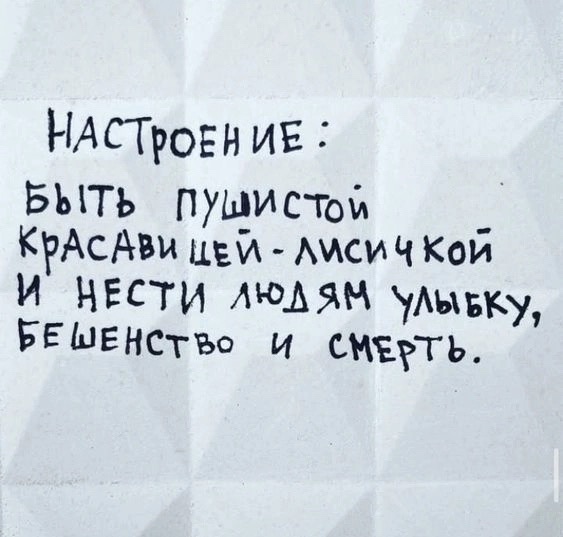 НАСТРОЕНИЕ:
БЫТЬ ПУШИСТОЙ
КРАСАВИЦЕЙ-ЛИСИЧКОЙ
И НЕСТИ ЛЮДЯМ УЛЫБКУ,
БЕШЕНСТВО И СМЕРТЬ.